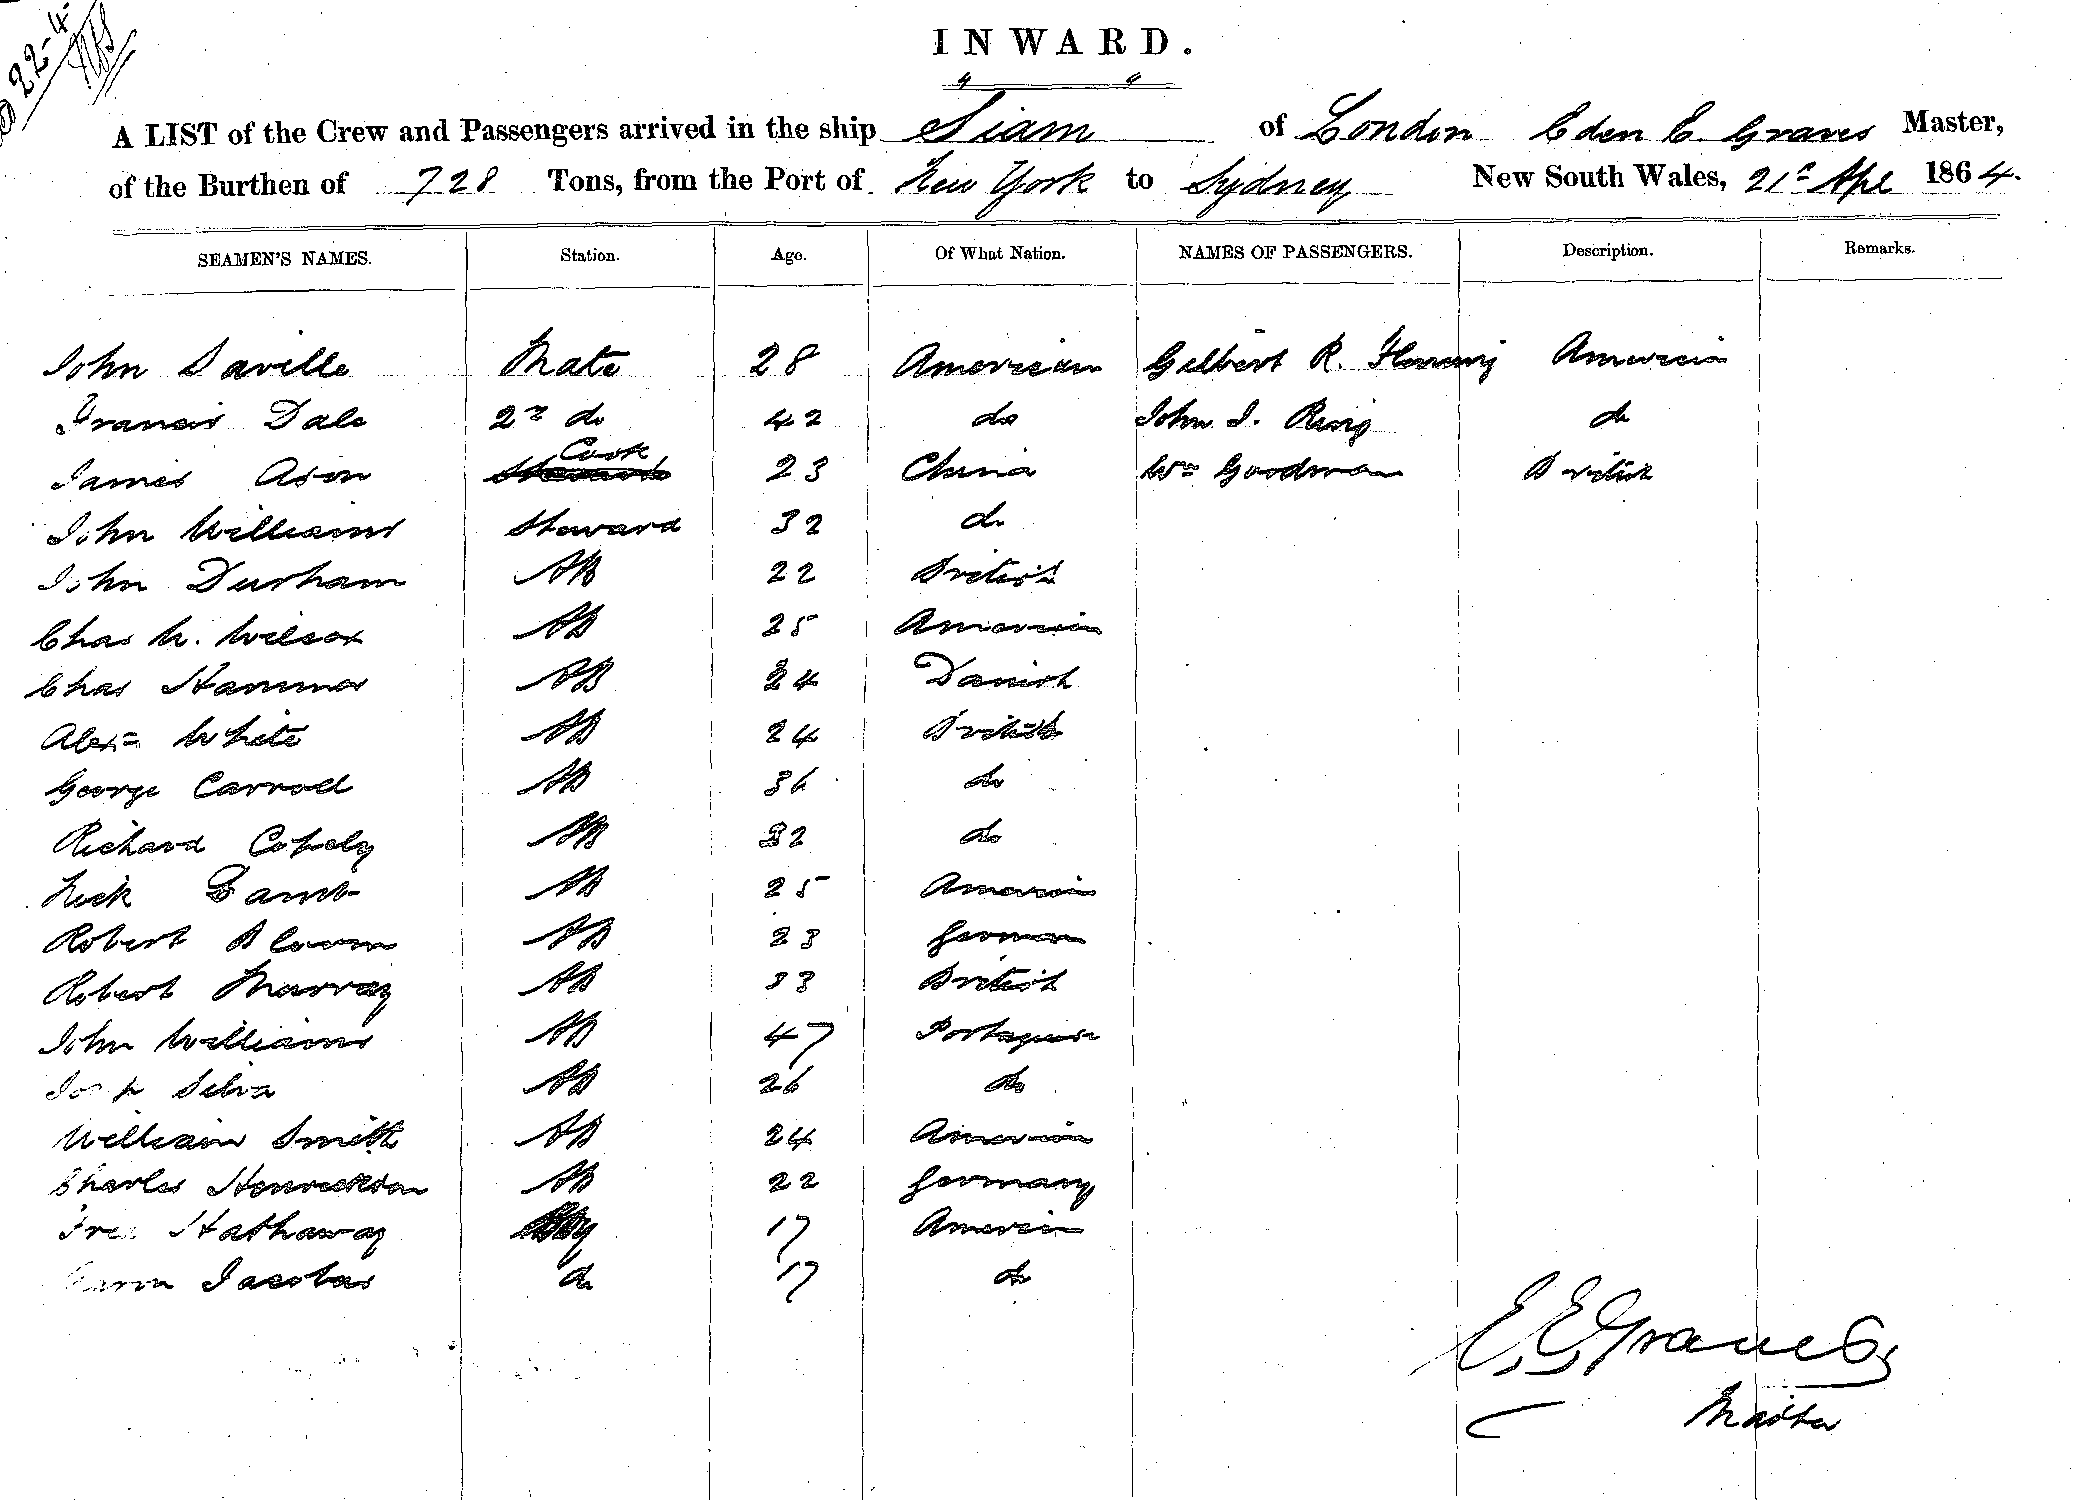 22-4
INWARD.
A LIST of the Crew and Passengers arrived in the ship Siam of London Eden E. Graves Master,
of the Burthen of 728 Tons, from the Port of New York to Sydney New South Wales, 21st Apl 1864.
SEAMEN'S NAMES. Station. Age. Of What Nation. NAMES OF PASSENGERS. Description. Remarks.
John Saville Mate 28 American Gilbert R. American
Francis Dale 2nd do 42 do John I. do
Cook
James Ason Steward 23 China Wm Goodman British
John Williams Steward 32 do
John Durham AB 22 British
Chas W. Wilcox AB 25 American
Chas Hammer AB 24 Danish
Alexr White AB 24 British
George Carroll AB 36 do
Richard Copely AB 32 do
Nick Lamb AB 25 American
Robert Bloom AB 23 German
Robert Murray AB 33 British
John Williams AB 47 Portuguese
Silva AB 26 do
William Smith AB 24 American
Charles Henrickson AB 22 Germany
Fred Hathaway Boy 17 American
Jacobs do 17 do
E. E. Graves
Master